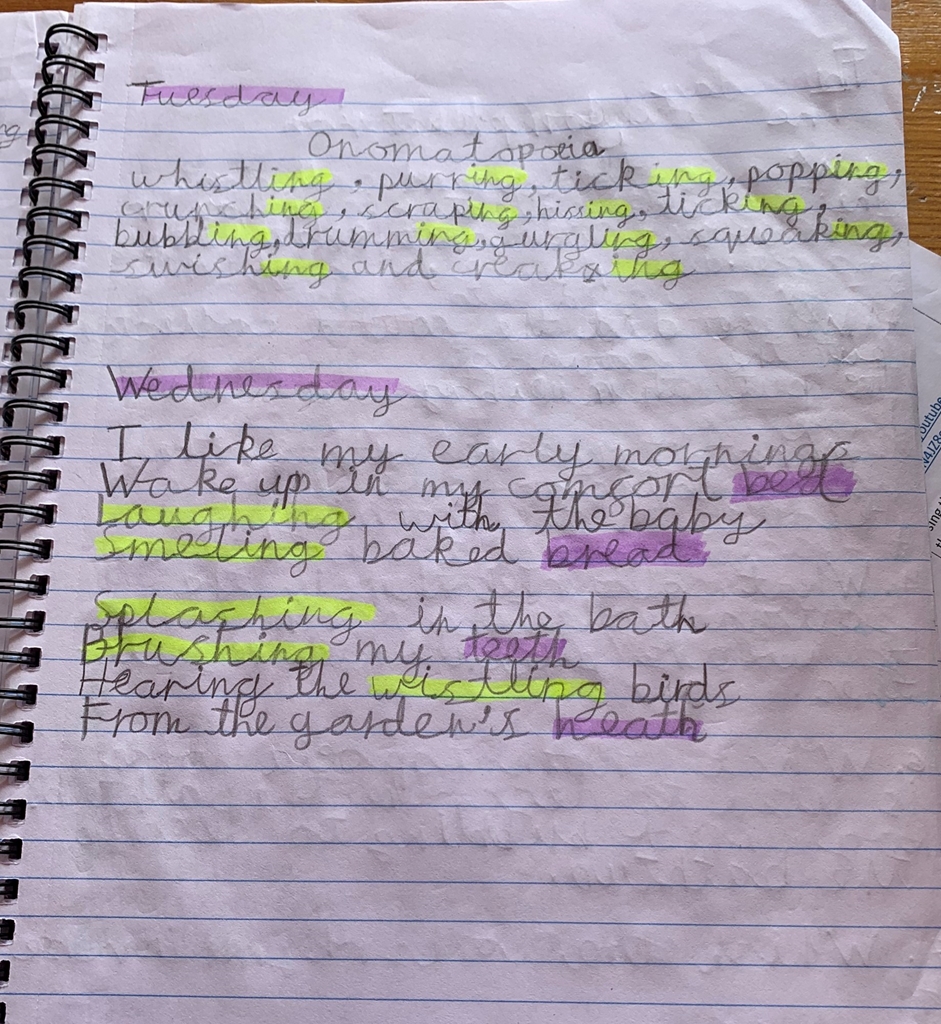 Tuesday
Onomatopoeia
whistling, purring, ticking, popping,
crunching, scraping, hissing, ticking,
bubbling, drumming, gurgling, squeaking,
swishing and creaking
Wednesday
I like my early mornings
Wake up in my comfort bed
Laughing with the baby
Smelling baked bread
Splashing in the bath
Brushing my teeth
Hearing the wistling birds
From the garden's heath
outube